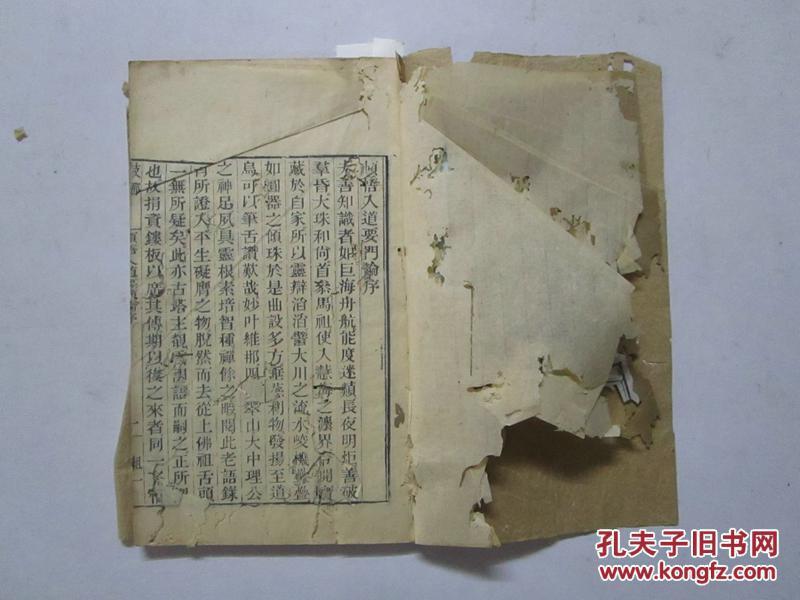 頓悟入道要門論序
夫善知識者如巨海舟航能度迷類長夜明炬善破
羣昏大珠和尚首參馬祖使人慧海之
藏於自家所以靈辯滔滔譬大川之流水峻機疊疊
如圓器之傾珠於是曲設多方無慈利物發揚至道
烏可以筆舌讚歎哉妙叶維那 翠山大中理公
之神足夙具靈根素培智種禪餘之暇閱此老語錄
有所證入平生礙膺之物脫然而去從上佛祖舌頭
一無所疑矣此亦古塔主 語而嗣之正所
也故捐資鏤板以廣其傳期以後之來者同
頓悟入道要門論序
孔夫子旧书网
www.kongfz.com